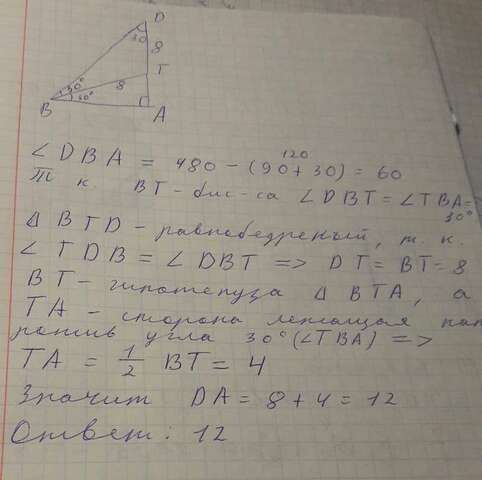 D
30
8
T
30°
8
30°
B
A
120
∠DBA = 180 - (90+30) = 60
Т к. BT - бис-са ∠DBT = ∠TBA =
30°
Δ BTD - равнобедреный, т. к.
∠TDB = ∠DBT => DT = BT = 8
BT - гипотенуза Δ BTA, а
TA - сторона лежащая нап
ротив угла 30° (∠TBA) =>
TA = 1/2 BT = 4
Значит DA = 8 + 4 = 12
Ответ: 12